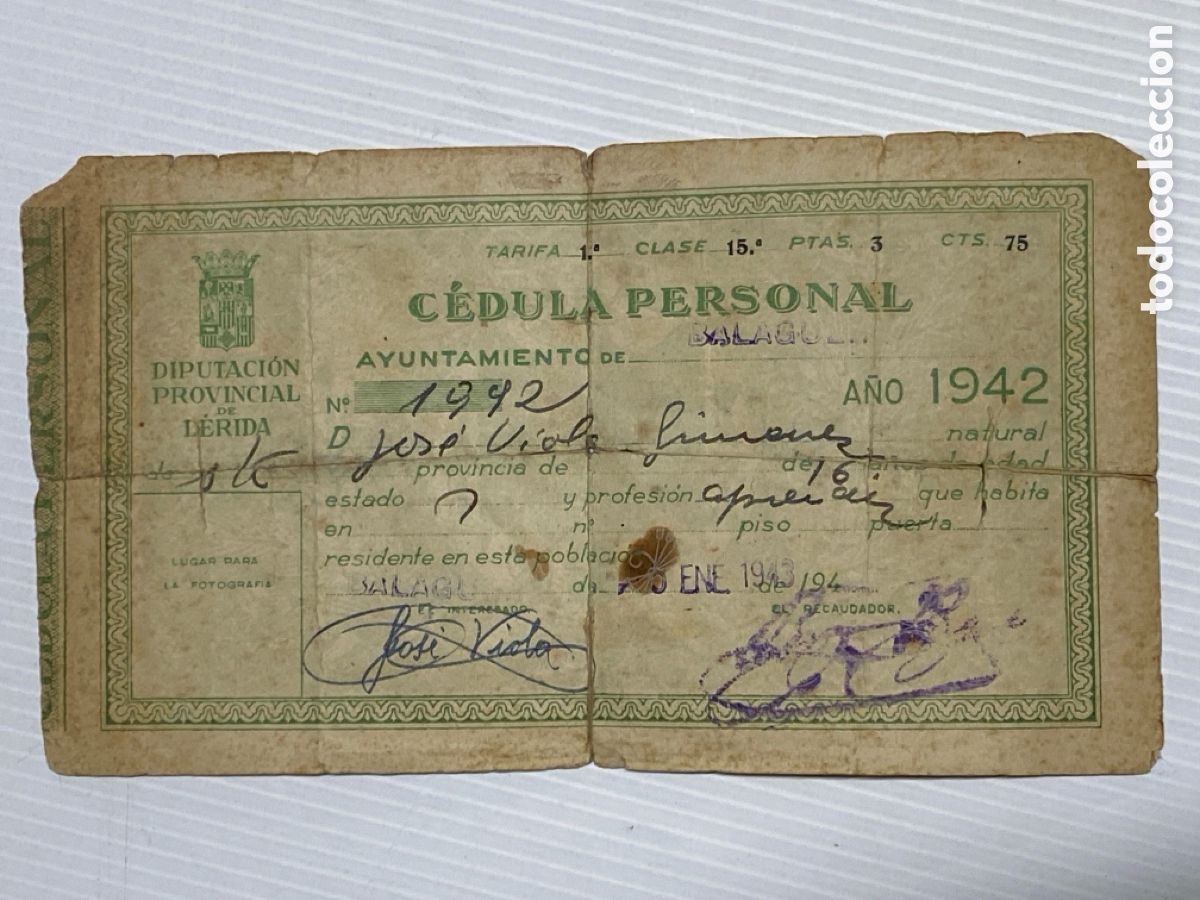 TARIFA 1.ª CLASE 15.ª PTAS. 3 CTS. 75
CÉDULA PERSONAL
DIPUTACIÓN
PROVINCIAL
DE
LÉRIDA
AYUNTAMIENTO DE BALAGUER
Nº 1942 AÑO 1942
D José Viola Gimenez natural
de provincia de de 16 años de edad
estado y profesión aprendiz que habita
en nº piso puerta
residente en esta población
BALAGU de ENE 1943 de 194
LUGAR PARA
LA FOTOGRAFIA
EL INTERESADO, EL RECAUDADOR,
José Viola
todocoleccion